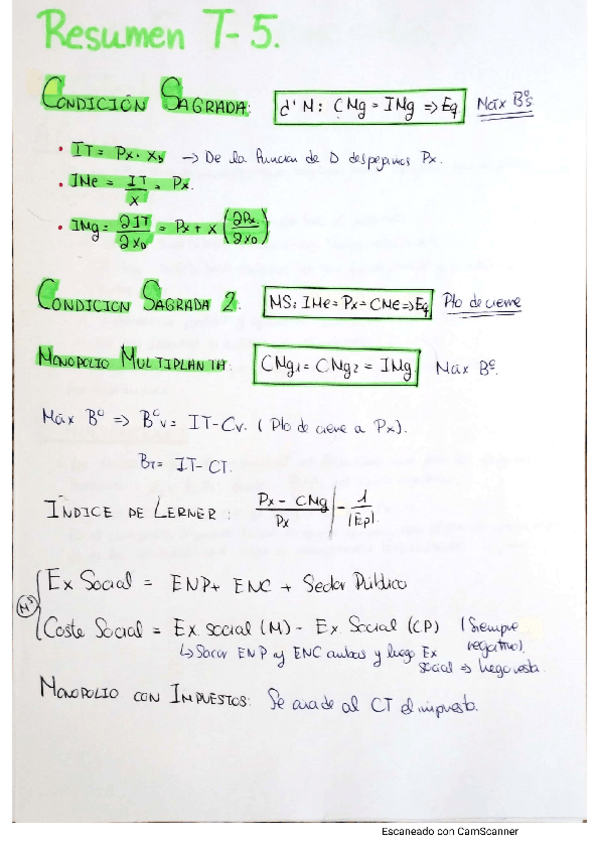 Resumen T-5.
CONDICIÓN SAGRADA: d'M: CMg = IMg => Eq Máx Bºs
• IT = Px · XD -> De la función de D despejamos Px.
• IMe = IT/X = Px.
• IMg = ∂IT/∂XD = Px + X (∂Px/∂XD)
CONDICION SAGRADA 2: MS: IMe = Px = CMe => Eq Pto de cierre
MONOPOLIO MULTIPLANTA: CMg1 = CMg2 = IMg Máx Bº.
Máx Bº => Bºv = IT - Cv. (Pto de cierre a Px).
BT = IT - CT.
ÍNDICE DE LERNER: Px - CMg / Px | - 1 / |Ep|.
Ex Social = ENP + ENC + Sector Público
Coste Social = Ex social (M) - Ex Social (CP) (Siempre negativo).
↳ Sacar ENP y ENC ambos y luego Ex social => luego resta.
MONOPOLIO CON IMPUESTOS: Se añade al CT el impuesta.
Escaneado con CamScanner